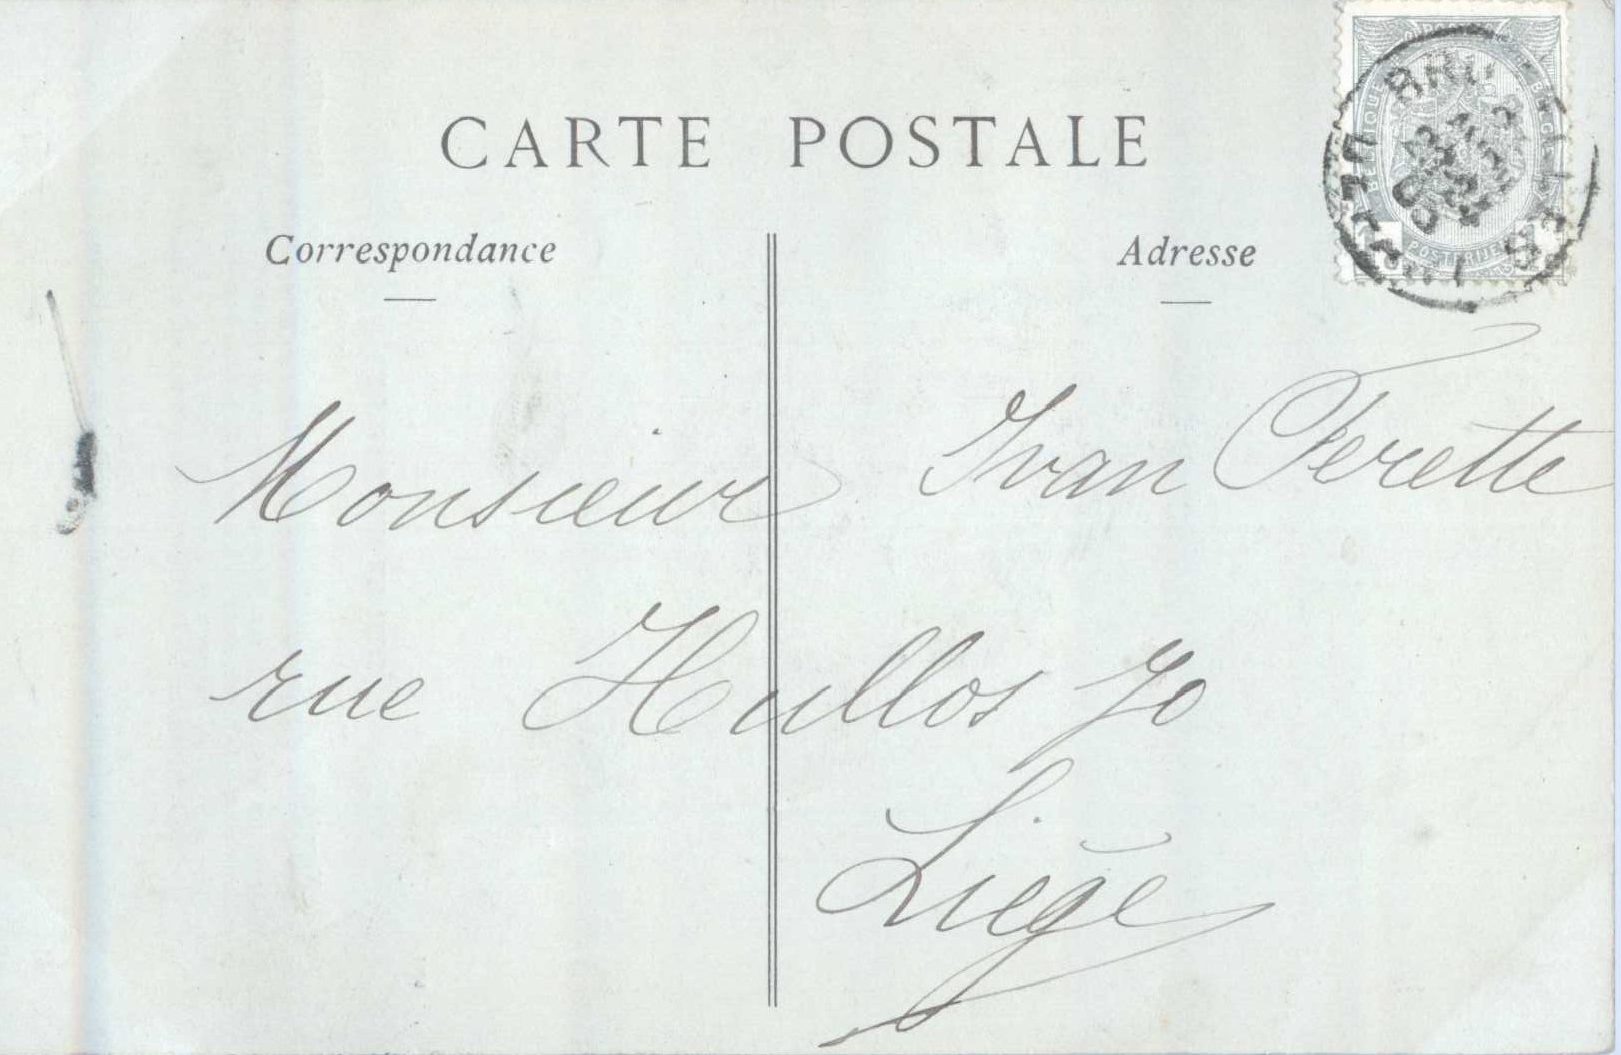 CARTE POSTALE
Correspondance
Adresse
Monsieur Ivan Ferette
rue Hullos 70
Liège